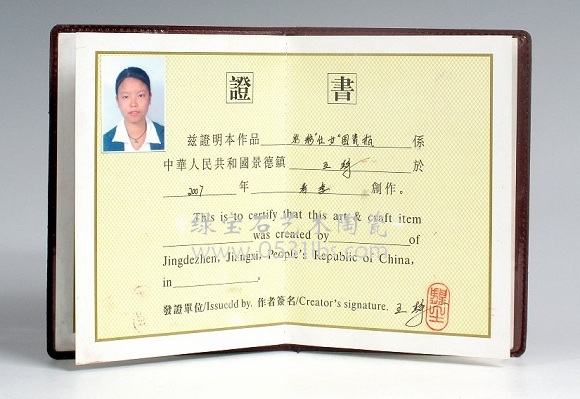 證 書
兹證明本作品 係
中華人民共和國景德鎮 王 於
2007 年 創作。
This is to certify that this art & craft item
was created by of
Jingdezhen, Jiangxi, People's Republic of China,
in .
绿宝石艺术陶瓷
www.0531lbs.com
發證單位/Issuedd by. 作者簽名/Creator's signature. 王